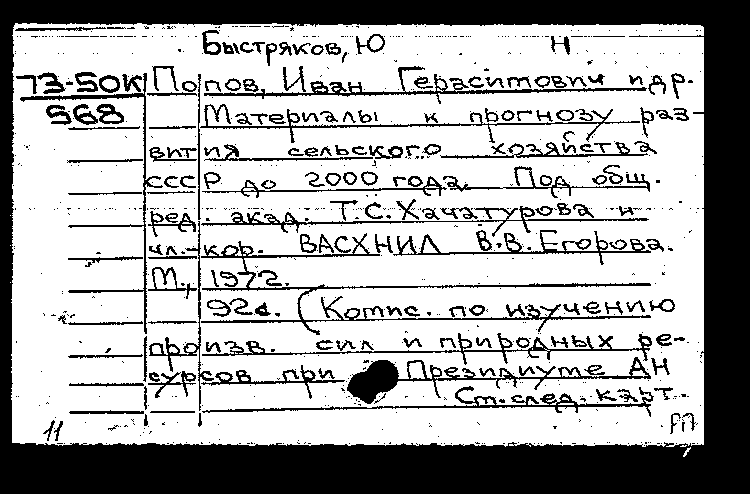 Быстряков, Ю Н
73-50К Попов, Иван Герасимович и др.
568 Материалы к прогнозу раз-
вития сельского хозяйства
СССР до 2000 года. Под общ.
ред. акад. Т.С.Хачатурова и
чл.-кор. ВАСХНИЛ В.В.Егорова.
М., 1972.
92с. (Комис. по изучению
произв. сил и природных ре-
сурсов при Президиуме АН
См. след. карт.
11 РП